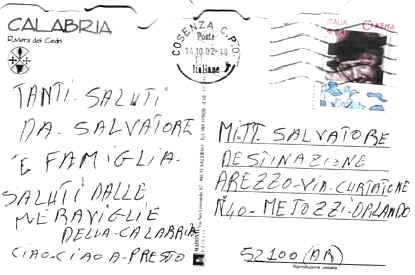 CALABRIA
Riviera dei Cedri
TANTI-SALUTI
DA-SALVATORE
E FAMIGLIA-
SALUTI DALLE
MERAVIGLIE
DELLA-CALABRIA
CIAO-CIAO-A-PRESTO
COSENZA C.P.O.
Poste
14.10.02-18
Italiane
ITALIA
MITT. SALVATORE
DESTINAZIONE
AREZZO-VIA-CURTATONE
N40-METOZZI-ORLANDO
52100(AR)
Riproduzione vietata